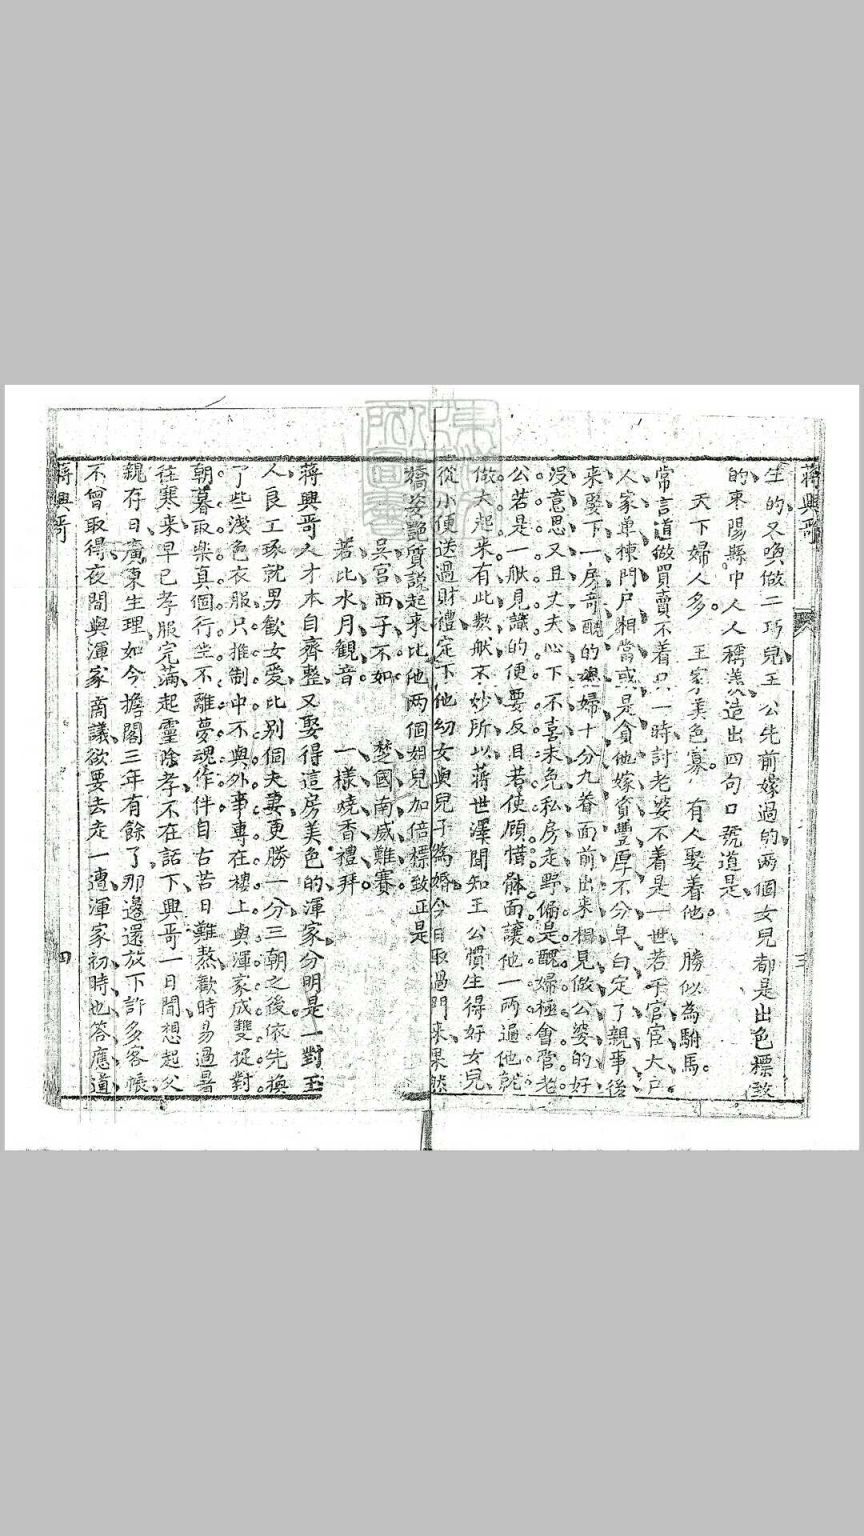 蔣興哥
三
生的又喚做三巧兒王公先前嫁過的兩個女兒都是出色標致
的東陽縣中人人稱羨造出四句口號道是
天下婦人多。王家美色寡。有人娶着他。勝似為駙馬。
常言道做買賣不着只一時討老婆不着是一世若干官宦大戶
人家单揀門戶相當或是貪他嫁資豐厚不分皁白定了親事後
来娶下一房奇醜的媳婦十分九眷面前出来相見做公婆的好
沒意思又且丈夫心下不喜未免私房走野偏是醜婦極會管老
公若是一般見識的便要反目若使顧惜体面讓他一兩遍他就
做大起来有此数般不妙所以蔣世澤聞知王公慣生得好女兒
從小便送過財禮定下他幼女與兒子為婚今日取過門来果然
嬌姿艷質說起来比他两個姐兒加倍標致正是
吳宮西子不如。楚國南威難賽。
若比水月観音。一樣燒香禮拜。
蔣興哥人才本自齊整又娶得這房美色的渾家分明是一對玉
人良工琢就男歡女愛比別個夫妻更勝一分三朝之後依先換
了些浅色衣服只推制中不與外事專在樓上與渾家成雙捉對
朝暮取樂真個行坐不離夢魂作伴自古苦日難熬歡時易過暑
往寒来早已孝服完满起靈除孝不在話下興哥一日間想起父
親存日廣東生理如今擔閣三年有餘了那邊還放下許多客帳
不曾取得夜間與渾家商議欲要去走一遭渾家初時也答應道
蔣興哥
四